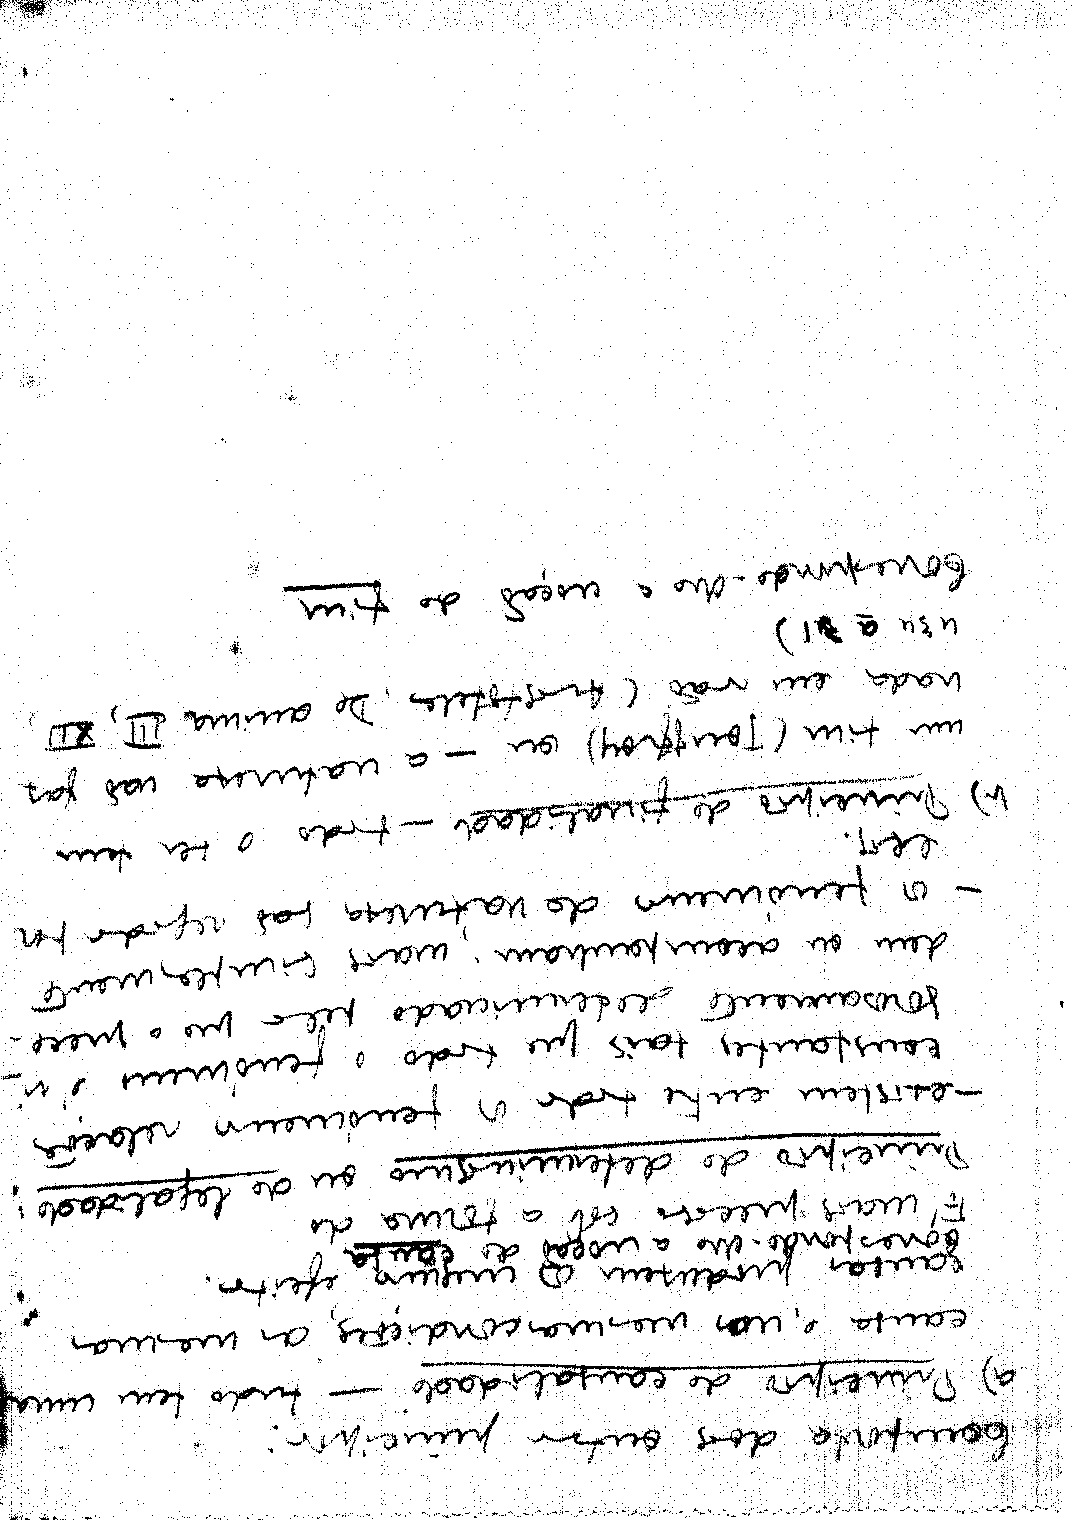 Comporta dois outros princípios:
a) Princípio de causalidade — tudo tem uma
causa e, nas mesmas condições, as mesmas
causas produzem os mesmos efeitos.
Corresponde-lhe a noção de causa
É mais preciso sob a forma do
Princípio do determinismo ou de legalidade:
— existem entre todos os fenómenos relações
constantes tais que todo o fenómeno é ri-
gorosamente condicionado pelos que o prece-
dem ou acompanham; mais simplesmente
— os fenómenos da natureza são regidos por
leis.
b) Princípio de finalidade — todo o ser tem
um fim (Jouffroy) ou — a natureza não faz
nada em vão (Aristóteles, De anima III, XII,
434 a 31)
Corresponde-lhe a noção de fim